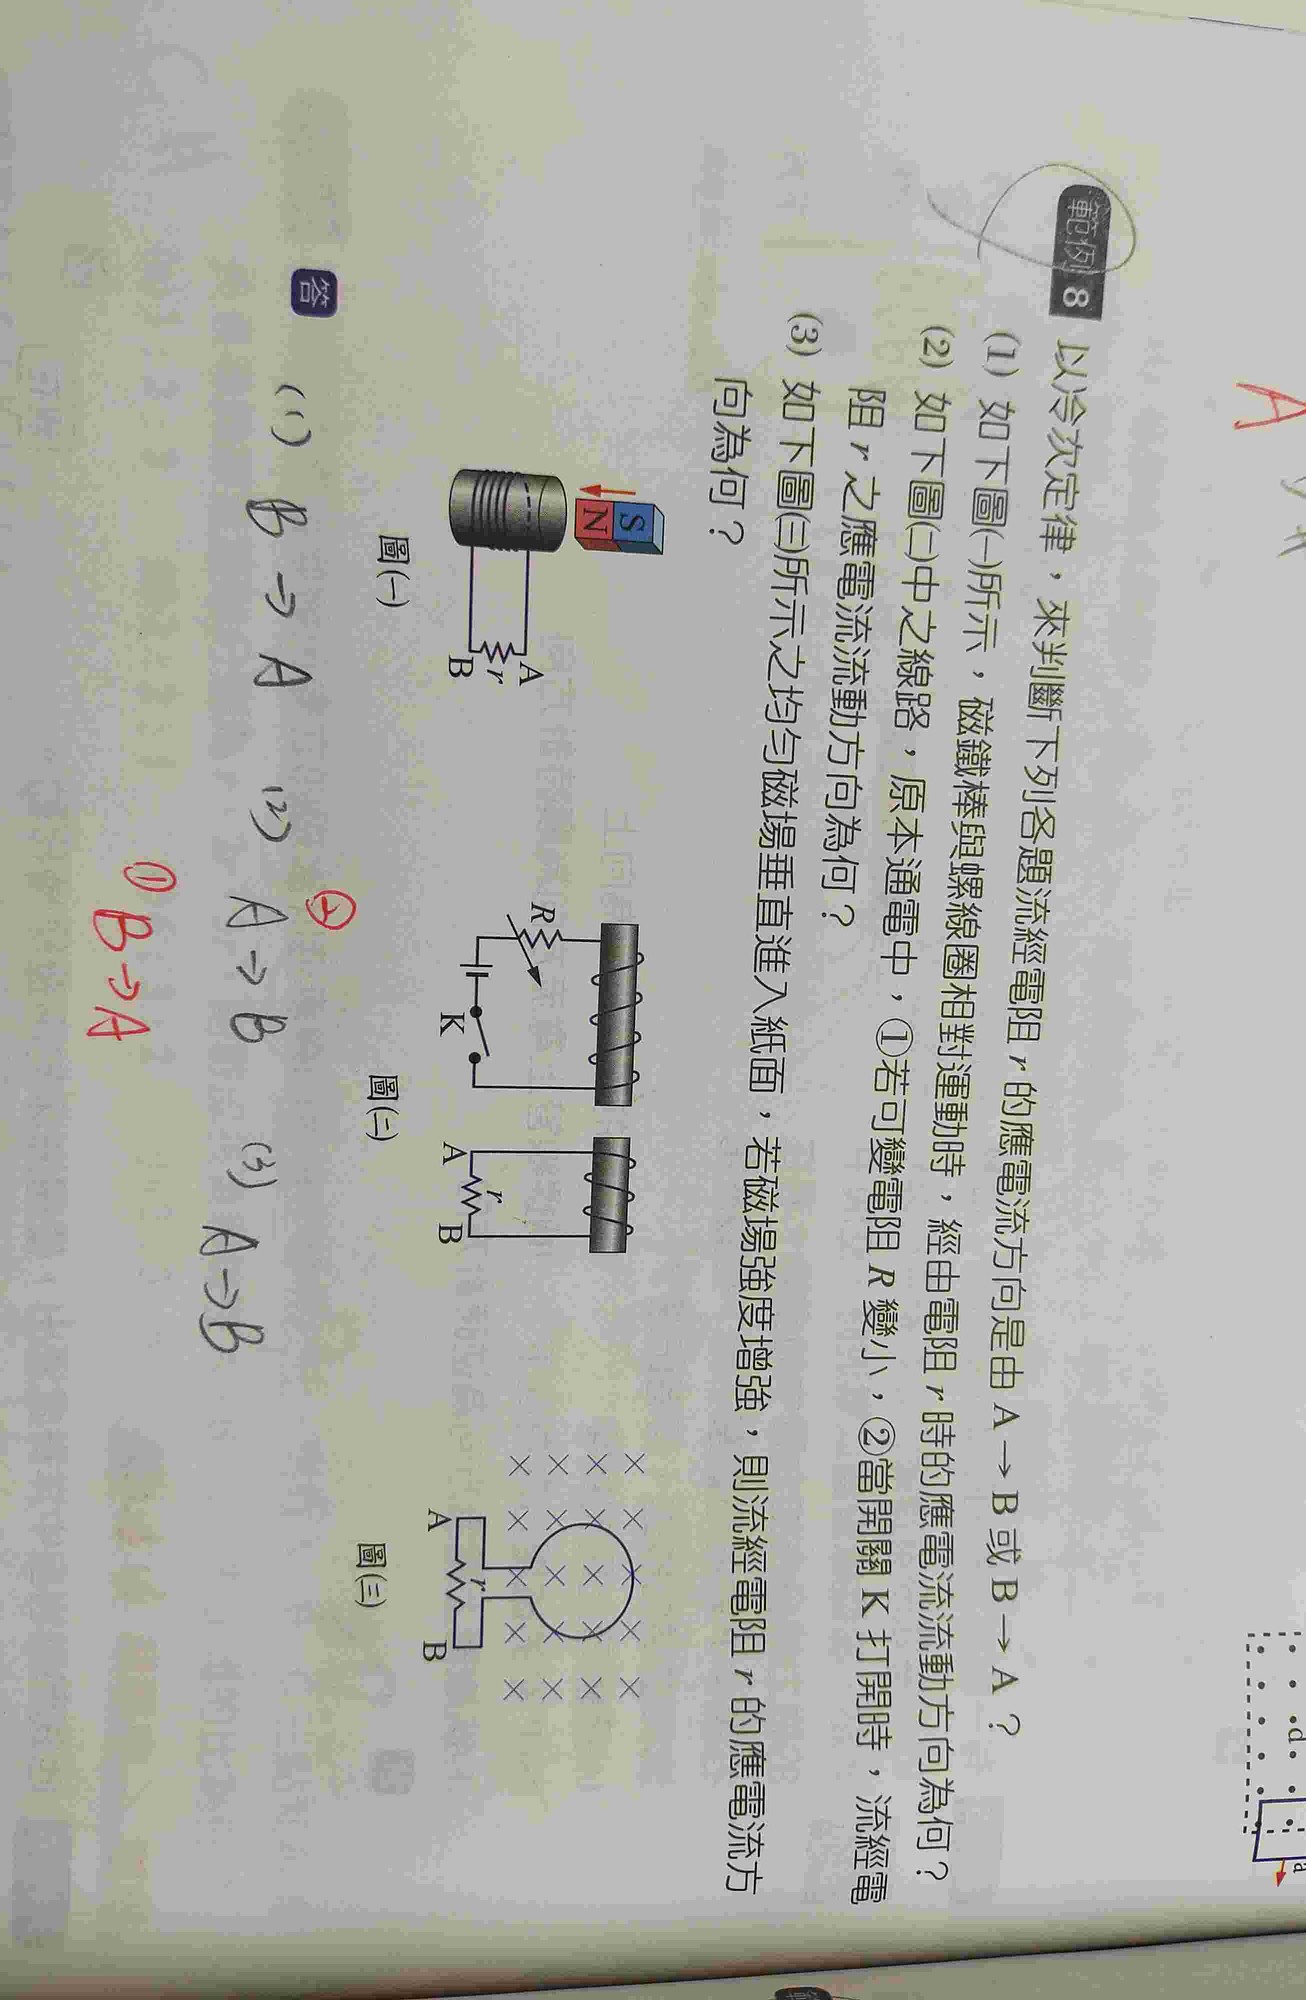 範例 8 以冷次定律，來判斷下列各題流經電阻 r 的應電流方向是由 A → B 或 B → A？
(1) 如下圖(一)所示，磁鐵棒與螺線圈相對運動時，經由電阻 r 時的應電流流動方向為何？
(2) 如下圖(二)中之線路，原本通電中，①若可變電阻 R 變小，②當開關 K 打開時，流經電
阻 r 之應電流流動方向為何？
(3) 如下圖(三)所示之均勻磁場垂直進入紙面，若磁場強度增強，則流經電阻 r 的應電流方
向為何？
S
N
A
r
B
圖(一)
R
K
A
r
B
圖(二)
A
r
B
圖(三)
答
(1) B → A (2) ② A → B (3) A → B
① B → A
A
d
a